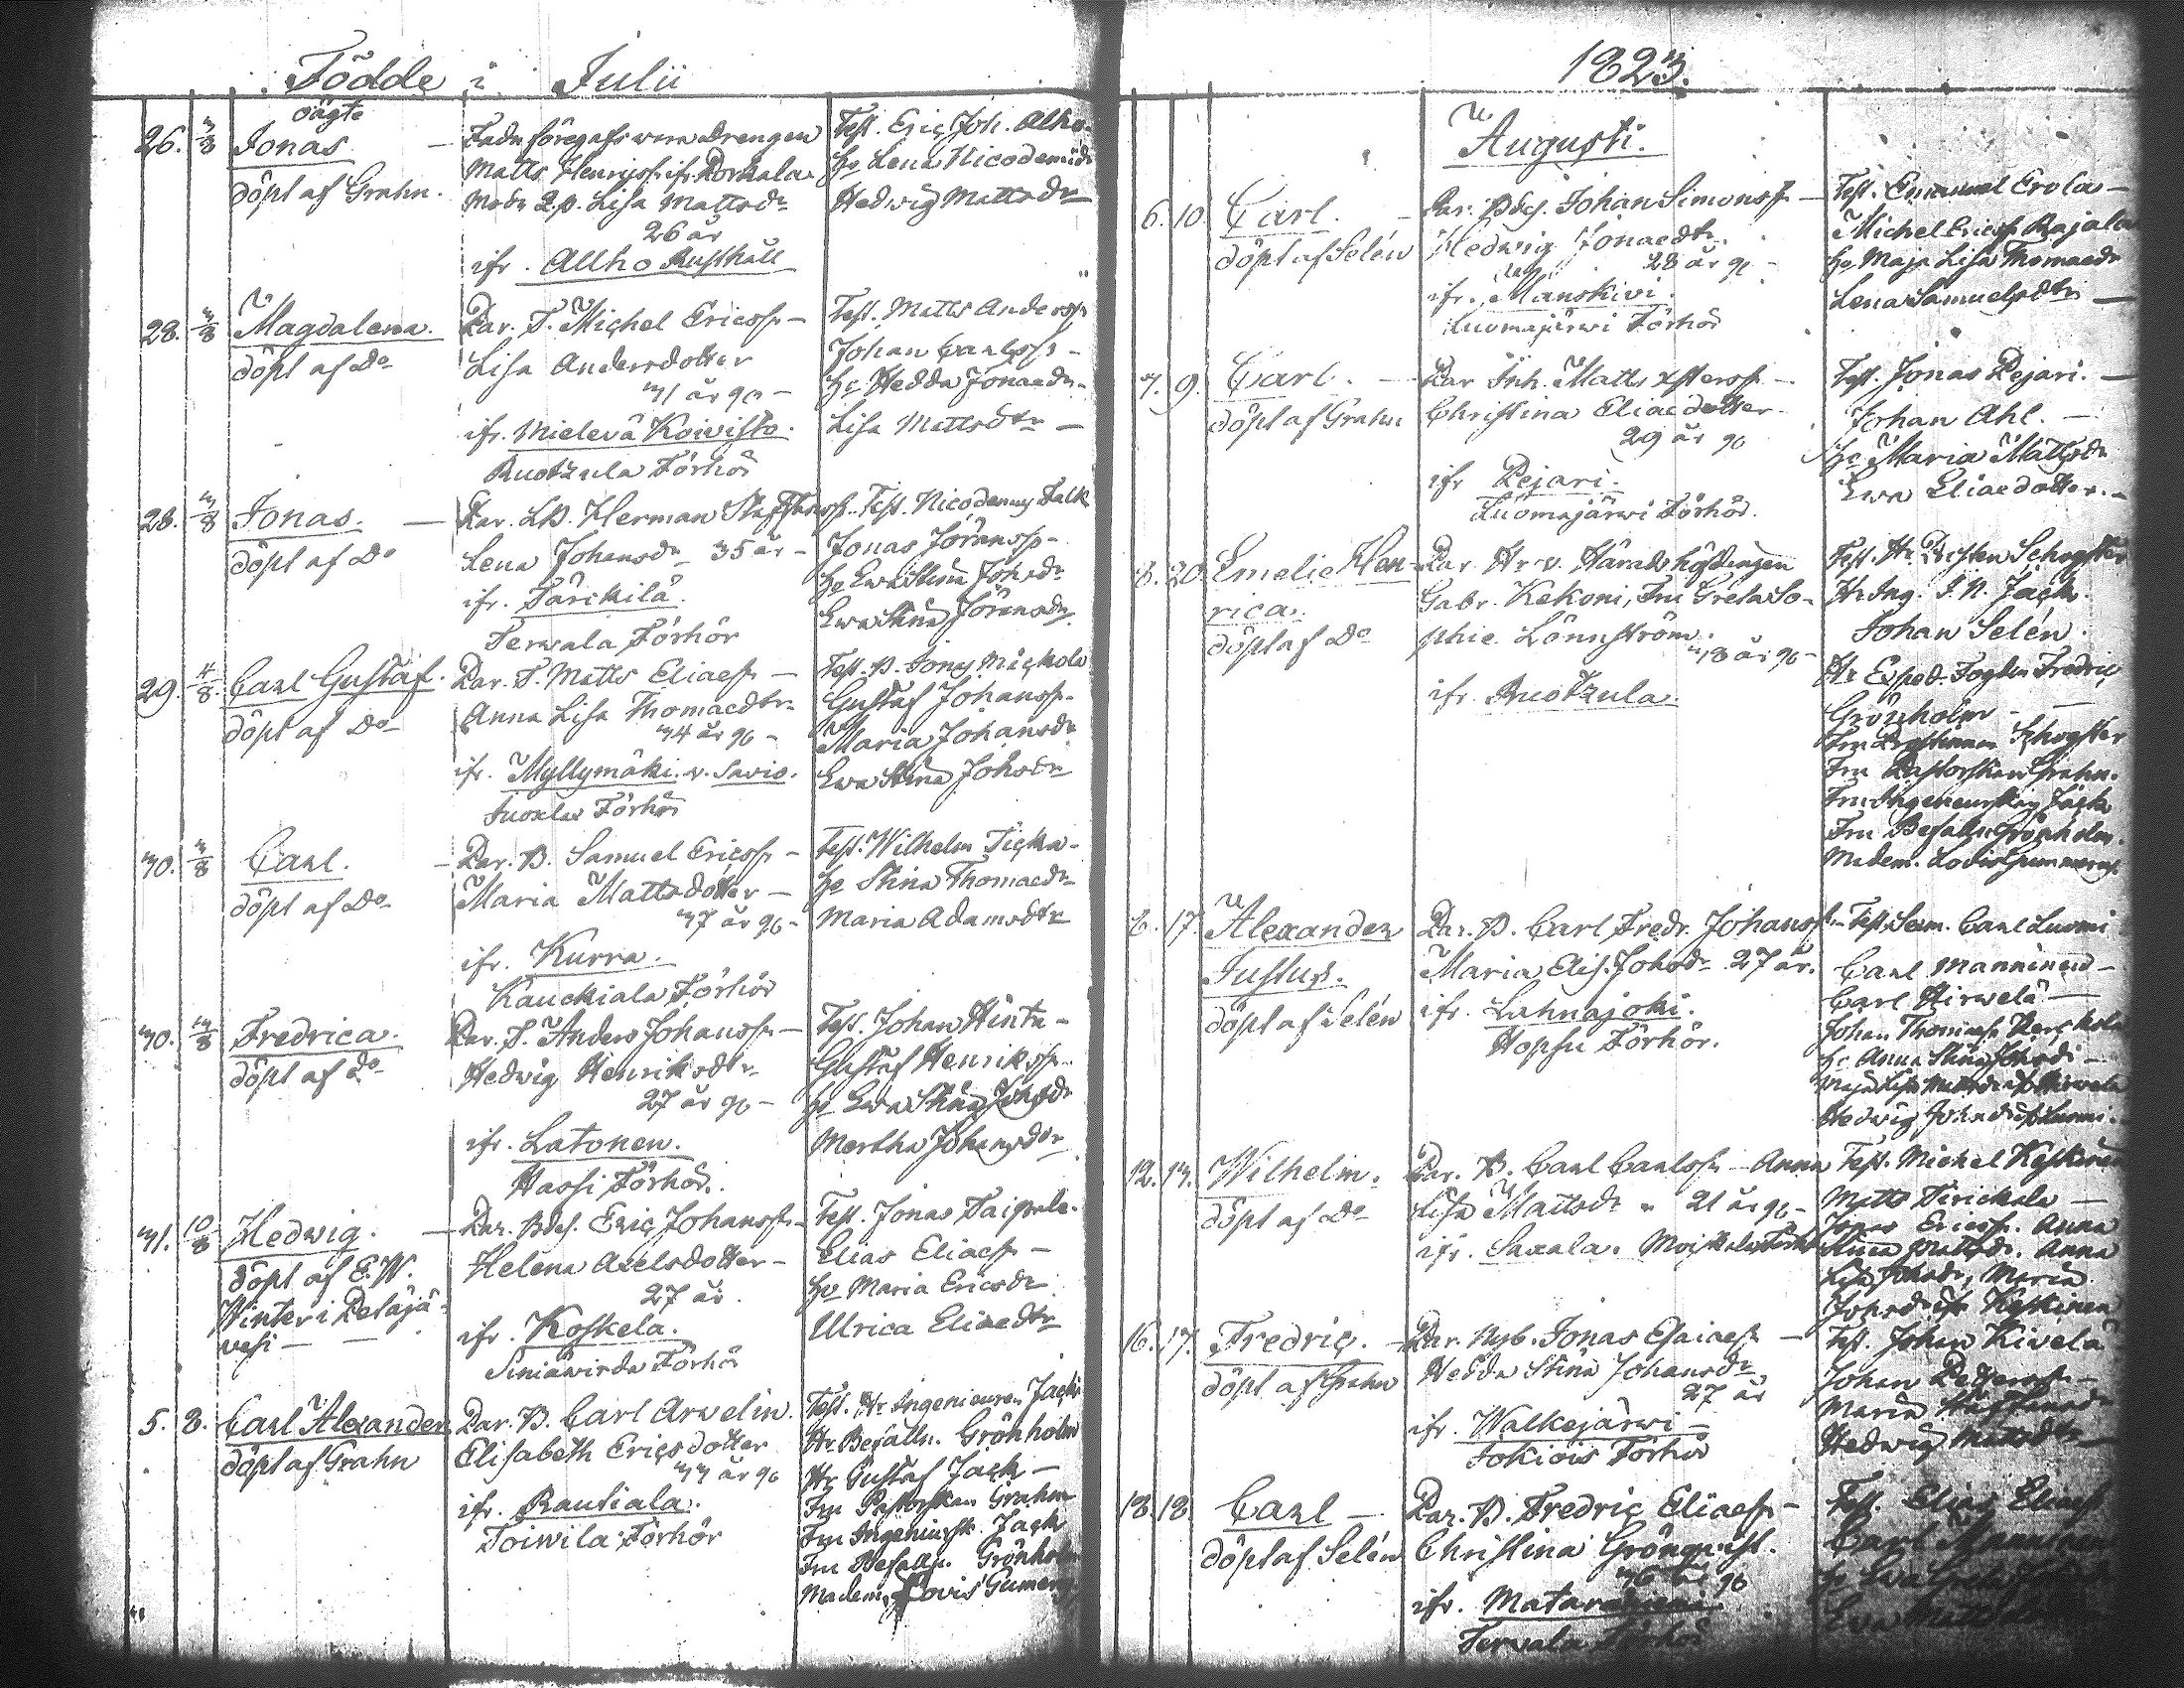 Födde i Julii
oägta
26. 3/8 Jonas
döpt af Grahn.
Fadr föregafs vara Drengen
Matts Henricss. ifr. Porkala
Modr Q.p. Lisa Mattsdr
26 år
ifr. Allho Rusthåll
Test. Eric Joh. Alho
Hu Lena Nicodemidr
Hedwig Mattsdr
28. 3/8 Magdalena.
döpt af Do
Par. T. Michel Ericss. —
Lisa Andersdotter
31 år go —
ifr. Mielevä Koivisto.
Ruotzula Förhör
Test. Matts Anderss.
Johan Carlss. —
Hu Hedda Jonaedr
Lisa Mattsdtr —
28. 3/8 Jonas. —
döpt af Do
Par. LB. Herman Staffanss.
Lena Johansdr 35 år —
ifr. Tärckilä.
Terwala Förhör
Test. Nicodemus Falk
Jonas Jöranss. —
Hu Ewa Stina Johsdr
Ewa Stina Jöransdr
29. 4/8. Carl Gustaf.
döpt af Do
Par. T. Matts Eliaess. —
Anna Lisa Thomaedtr
34 år go —
ifr. Myllymäki. v. Savis.
Förhör
Test. B. Jonas
Gustaf Johanss.
Maria Johansdr
Ewa Stina Johsdr
30. 3/8 Carl. —
döpt af Do
Par. B. Samuel Ericss. —
Maria Mattsdotter —
37 år go —
ifr. Kurra.
Kauckiala Förhör
Test. Wilhelm Ticka —
Hu Stina Thomaedr
Maria Adamsdtr
30. 3/8 Fredrica. —
döpt af do
Par. T. Anders Johanss. —
Hedwig Henriksdtr
27 år go —
ifr. Latonen.
Hassi Förhör.
Test. Johan Hintu —
Gustaf Henrikss.
Hu Ewa Stina Johsdr
Mertha Johansdr
31. 10/8 Hedwig. —
döpt af E. W.
Winter i Petäjä-
vesi —
Par. Bdes. Eric Johanss. —
Helena Axelsdotter —
27 år.
ifr. Koskela.
Siniäwirda Förhör
Test. Jonas Taipale.
Elias Eliaess. —
Hu Maria Ericsdr
Ulrica Eliaedtr
5. 8. Carl Alexander
döpt af Grahn
Par. B. Carl Arvelin.
Elisabeth Ericsdotter
33 år go
ifr. Rautiala.
Toiwila Förhör
Test. Hr Ingenieuren Jack
Hr Befalln. Grönholm
Hr Gustaf Jack —
Fru Pastorskan Grahn
Fru Ingenieursk. Jack
Fru Befalln. Grönholm
Madem. Lovis
1823.
Augusti.
6. 10. Carl. —
döpt af Selén
Par. Bdes. Johan Simonss. —
Hedwig Jonaedtr
28 år go —
ifr. Manskivi.
Luomajärwi Förhör
Test. Emanuel Erola —
Michel Ericss. Rajala
Hu Maja Lisa Thomaedr
Lena Samuelsdtr —
7. 9. Carl. —
döpt af Grahn
Par Inh. Matts —
Christina Eliaedotter
29 år go
ifr Pejari.
Luomajärwi Förhör.
Test. Jonas Pejari. —
Johan Ahl. —
Hu Maria Mattsdr
Ewa Eliaedotter. —
8. 20. Emelie Hen-
rica.
döpt af Do
Par Hr v. Häradshöfdingen
Gabr. Kekoni, Fru Greta So-
phie Lönnström.
38 år go —
ifr. Ruotzula.
Test. Hr
Hr Ing. J. N. Jack.
Johan Selén.
Hr Exped. Fogden Fredric
Grönholm —
Fru
Fru Pastorskan Grahn.
Fru Ingenieurskan Jack
Fru Befalln. Grönholm.
Madem. Lovis
6. 17. Alexander
Justus.
döpt af Selén
Par. B. Carl Fredr. Johanss. —
Maria Elis. Johsdr 27 år.
ifr. Lahnajoki.
Hopsu Förhör.
Test. Carl
Carl Manninen —
Carl Hirwelä —
Johan Thomaess.
Hu Anna Stina Johsdr —
Hedwig Johsdr
12. 13. Wilhelm.
döpt af Do
Par. B. Carl Carlss. — Anna
Lisa Mattsdr 21 år go —
ifr. Saxala.
Test. Michel Keskinen
Matts —
Jonas Ericss. Anna
Stina Mattsdr. Anna
Lisa Johsdr, Maria
Johsdr ifr Keskinen
16. 17. Fredric. —
döpt af Grahn
Par. Nyb. Jonas Esaiaess. —
Hedda Stina Johansdr
27 år
ifr. Walkejärwi —
Jokiois Förhör
Test. Johan Kivelä
Johan Petterss. —
Maria
Hedwig Mattsdtr
18. 18. Carl —
döpt af Selén
Par. B. Fredric Eliaess. —
Christina Grönqvist.
36 år go
ifr.
Terwala Förhör
Test. Elias Eliaess.
Carl Manninen